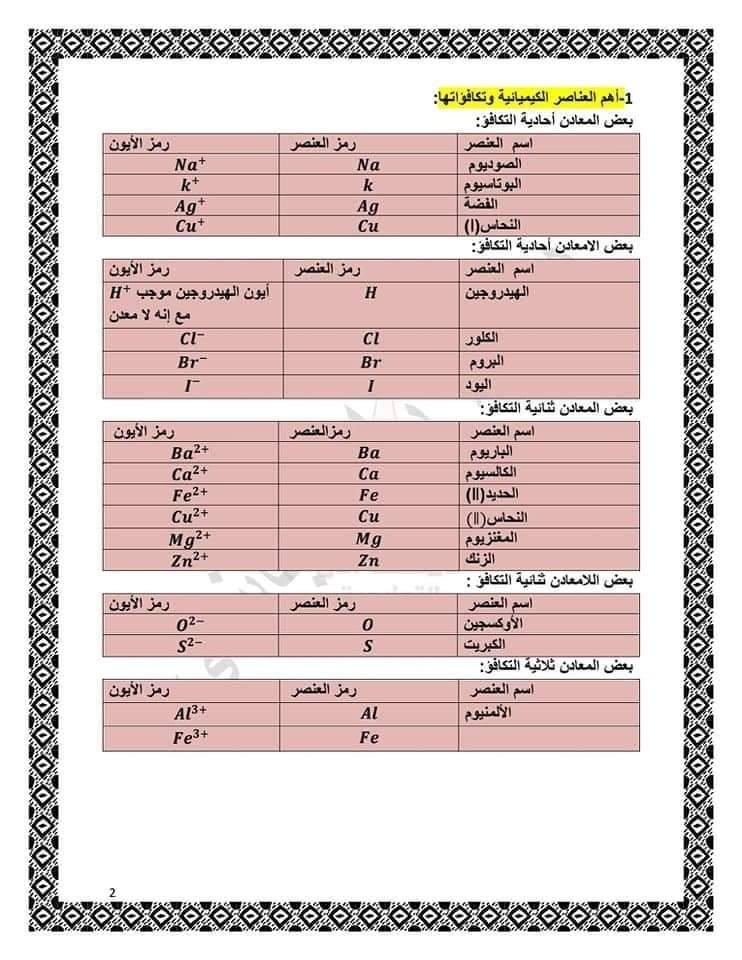 1-أهم العناصر الكيميائية وتكافؤاتها:
بعض المعادن أحادية التكافؤ:
اسم العنصر رمز العنصر رمز الأيون
الصوديوم Na Na⁺
البوتاسيوم k k⁺
الفضة Ag Ag⁺
النحاس(I) Cu Cu⁺
بعض الامعادن أحادية التكافؤ:
اسم العنصر رمز العنصر رمز الأيون
الهيدروجين H أيون الهيدروجين موجب H⁺
مع إنه لا معدن
الكلور Cl Cl⁻
البروم Br Br⁻
اليود I I⁻
بعض المعادن ثنائية التكافؤ:
اسم العنصر رمزالعنصر رمز الأيون
الباريوم Ba Ba²⁺
الكالسيوم Ca Ca²⁺
الحديد(II) Fe Fe²⁺
النحاس(II) Cu Cu²⁺
المغنزيوم Mg Mg²⁺
الزنك Zn Zn²⁺
بعض اللامعادن ثنائية التكافؤ :
اسم العنصر رمز العنصر رمز الأيون
الأوكسجين O O²⁻
الكبريت S S²⁻
بعض المعادن ثلاثية التكافؤ:
اسم العنصر رمز العنصر رمز الأيون
الألمنيوم Al Al³⁺
Fe Fe³⁺
2